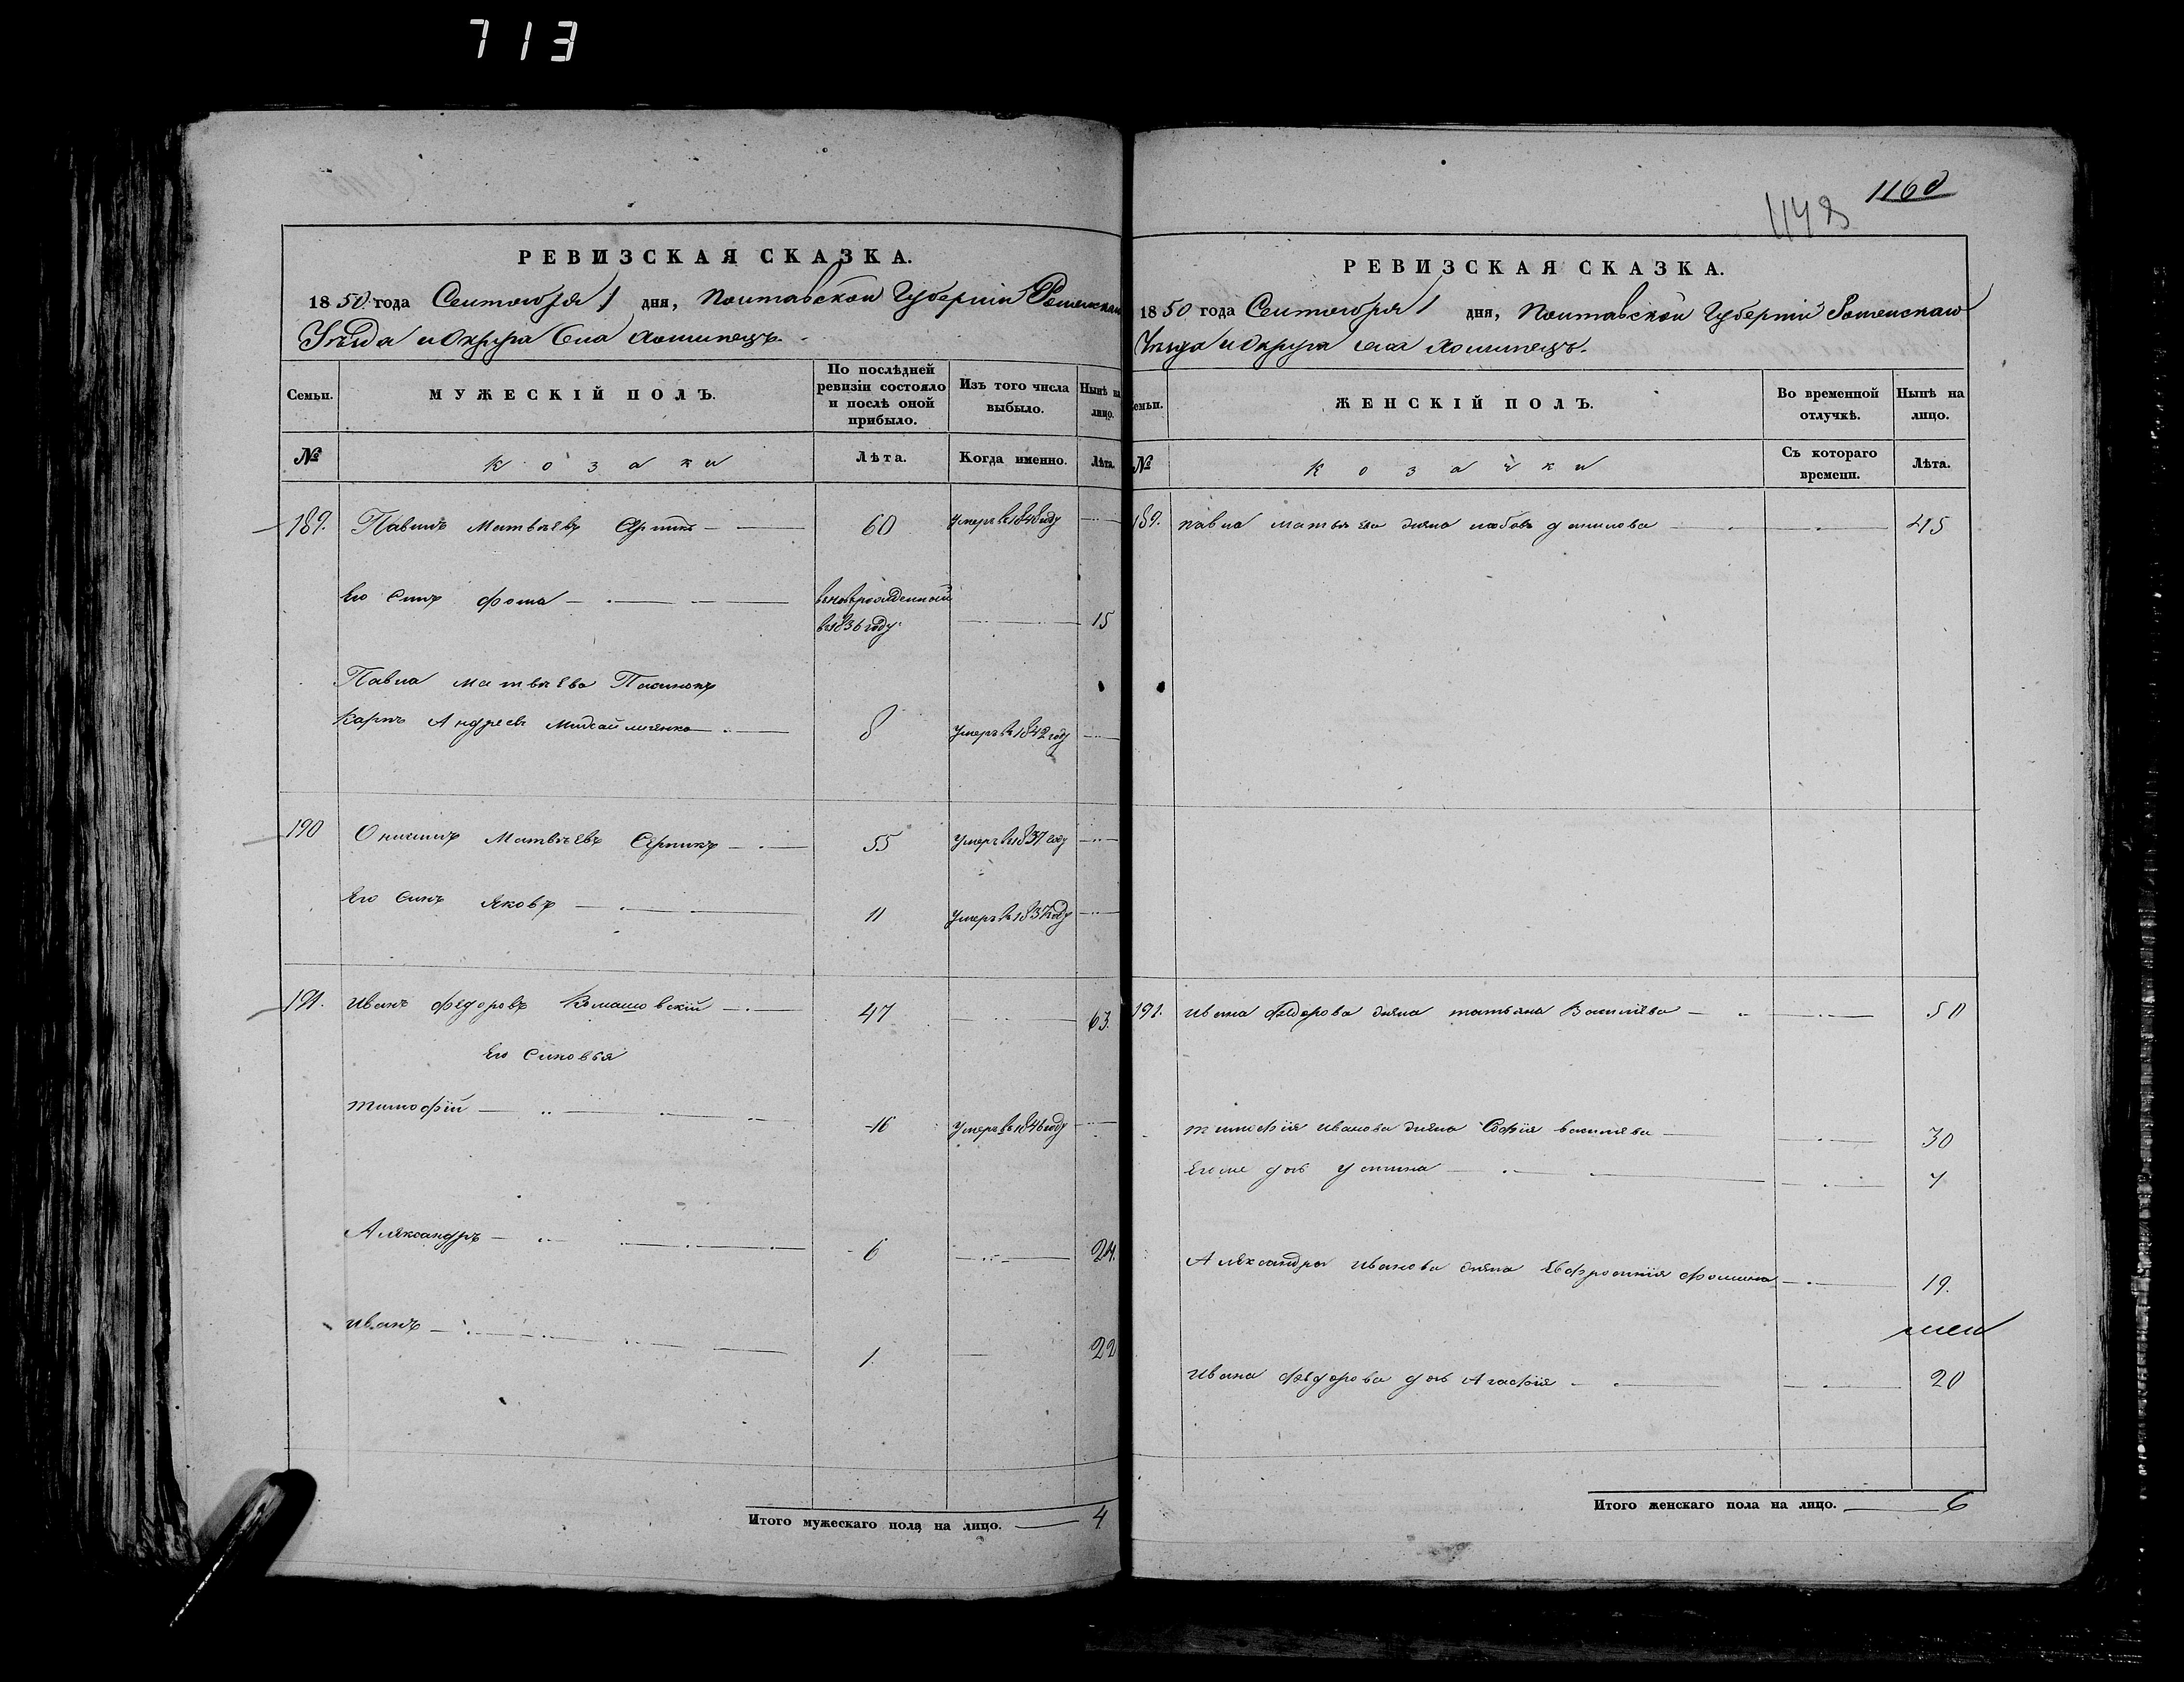 713
РЕВИЗСКАЯ СКАЗКА.
1850 года Сентября 1 дня, Полтавской Губерніи Роменскаго
Уѣзда и Округа Села
Семьи. МУЖЕСКІЙ ПОЛЪ. По послѣдней ревизіи состояло и послѣ оной прибыло. Изъ того числа выбыло. Нынѣ на лицо.
№ Козаки Лѣта. Когда именно. Лѣта.
189. Павелъ Матвѣевъ 60 Умеръ в 1848 году
Его Синъ Фома новорожденный
в 1836 году 15
Павла Матвѣева Пасинокъ
Карпъ Андреевъ Михайличенко 8 Умеръ в 1842 году
190 Онисимъ Матвѣевъ 55 Умеръ в 1837 году
Его Синъ Яковъ 11 Умеръ в 1837 году
191. Иванъ Федоровъ 47 63.
Его Синовья
Тимофій 16 Умеръ в 1846 году
Александръ 6 24.
Иванъ 1. 22
Итого мужескаго пола на лицо. 4
1160
РЕВИЗСКАЯ СКАЗКА.
1850 года Сентября 1 дня, Полтавской Губерніи Роменскаго
Уѣзда и Округа села
Семьи. ЖЕНСКІЙ ПОЛЪ. Во временной отлучкѣ. Нынѣ на лицо.
№ Козачки Съ котораго времени. Лѣта.
189. Павла Матвѣева жена Любовь Данилова 45
191. Ивана Федорова жена Татьяна Василіева 50
Тимофія Иванова жена Софія Василіева 30
дочь Устина 7
Александра Иванова жена Евфросинія Фомина 19.
Ивана Федорова дочь Агафія 20
Итого женскаго пола на лицо. 6